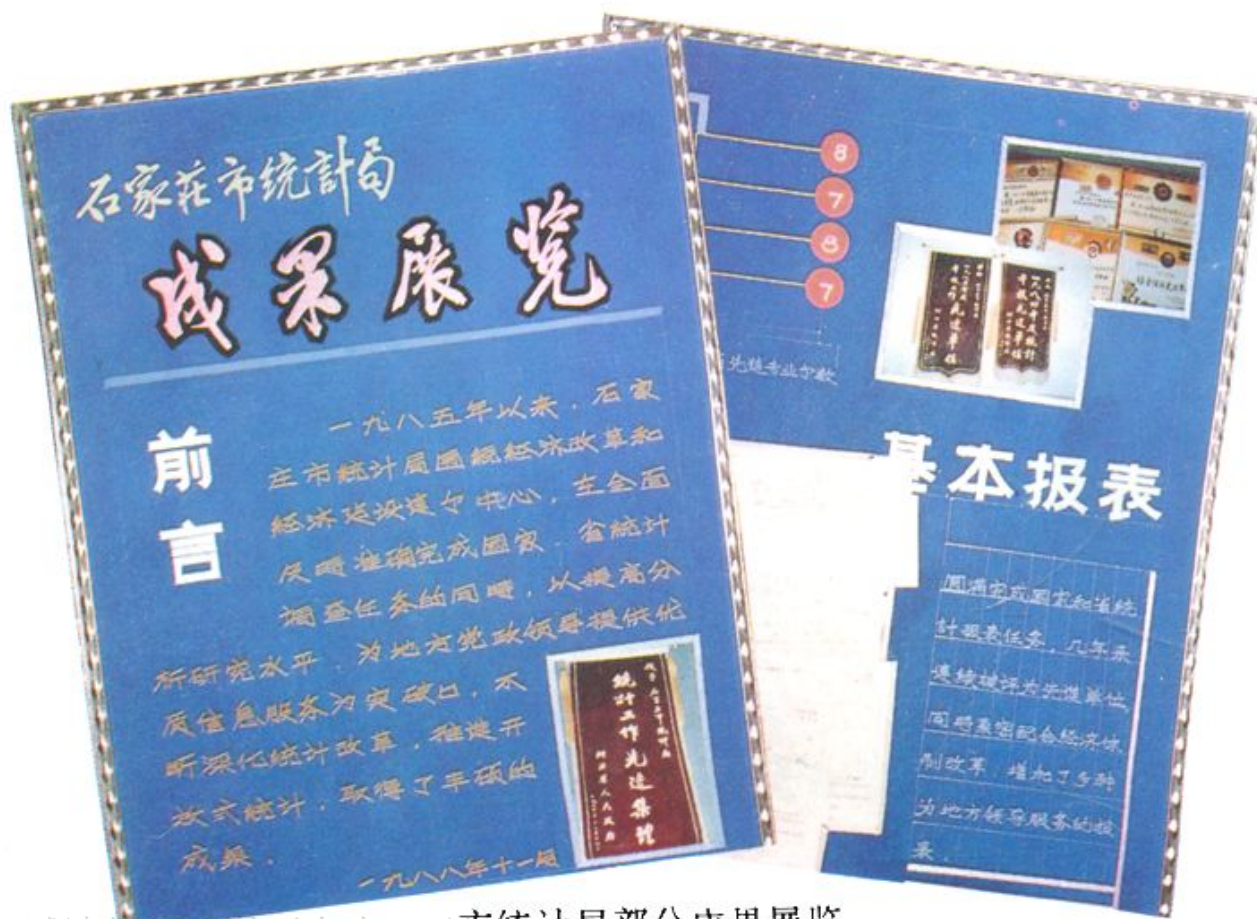 石家莊市统計局
成果展览
前言
一九八五年以来，石家
庄市统计局围绕经济改革和
经济建设这个中心，在全面
及时准确完成国家、省统计
调查任务的同时，以提高分
析研究水平，为地方党政领导提供优
质信息服务为突破口，不
断深化统计改革，推进开
放式统计，取得了丰硕的
成果．
一九八八年十一月
统计工作先进集体
河北省人民政府
8
7
8
7
先进专业个数
基本报表
圆满完成国家和省统
计报表任务，几年来
连续被评为先进单位，
同时紧密配合经济体
制改革，增加了多种
为地方领导服务的报
表．
市统计局部分成果展览